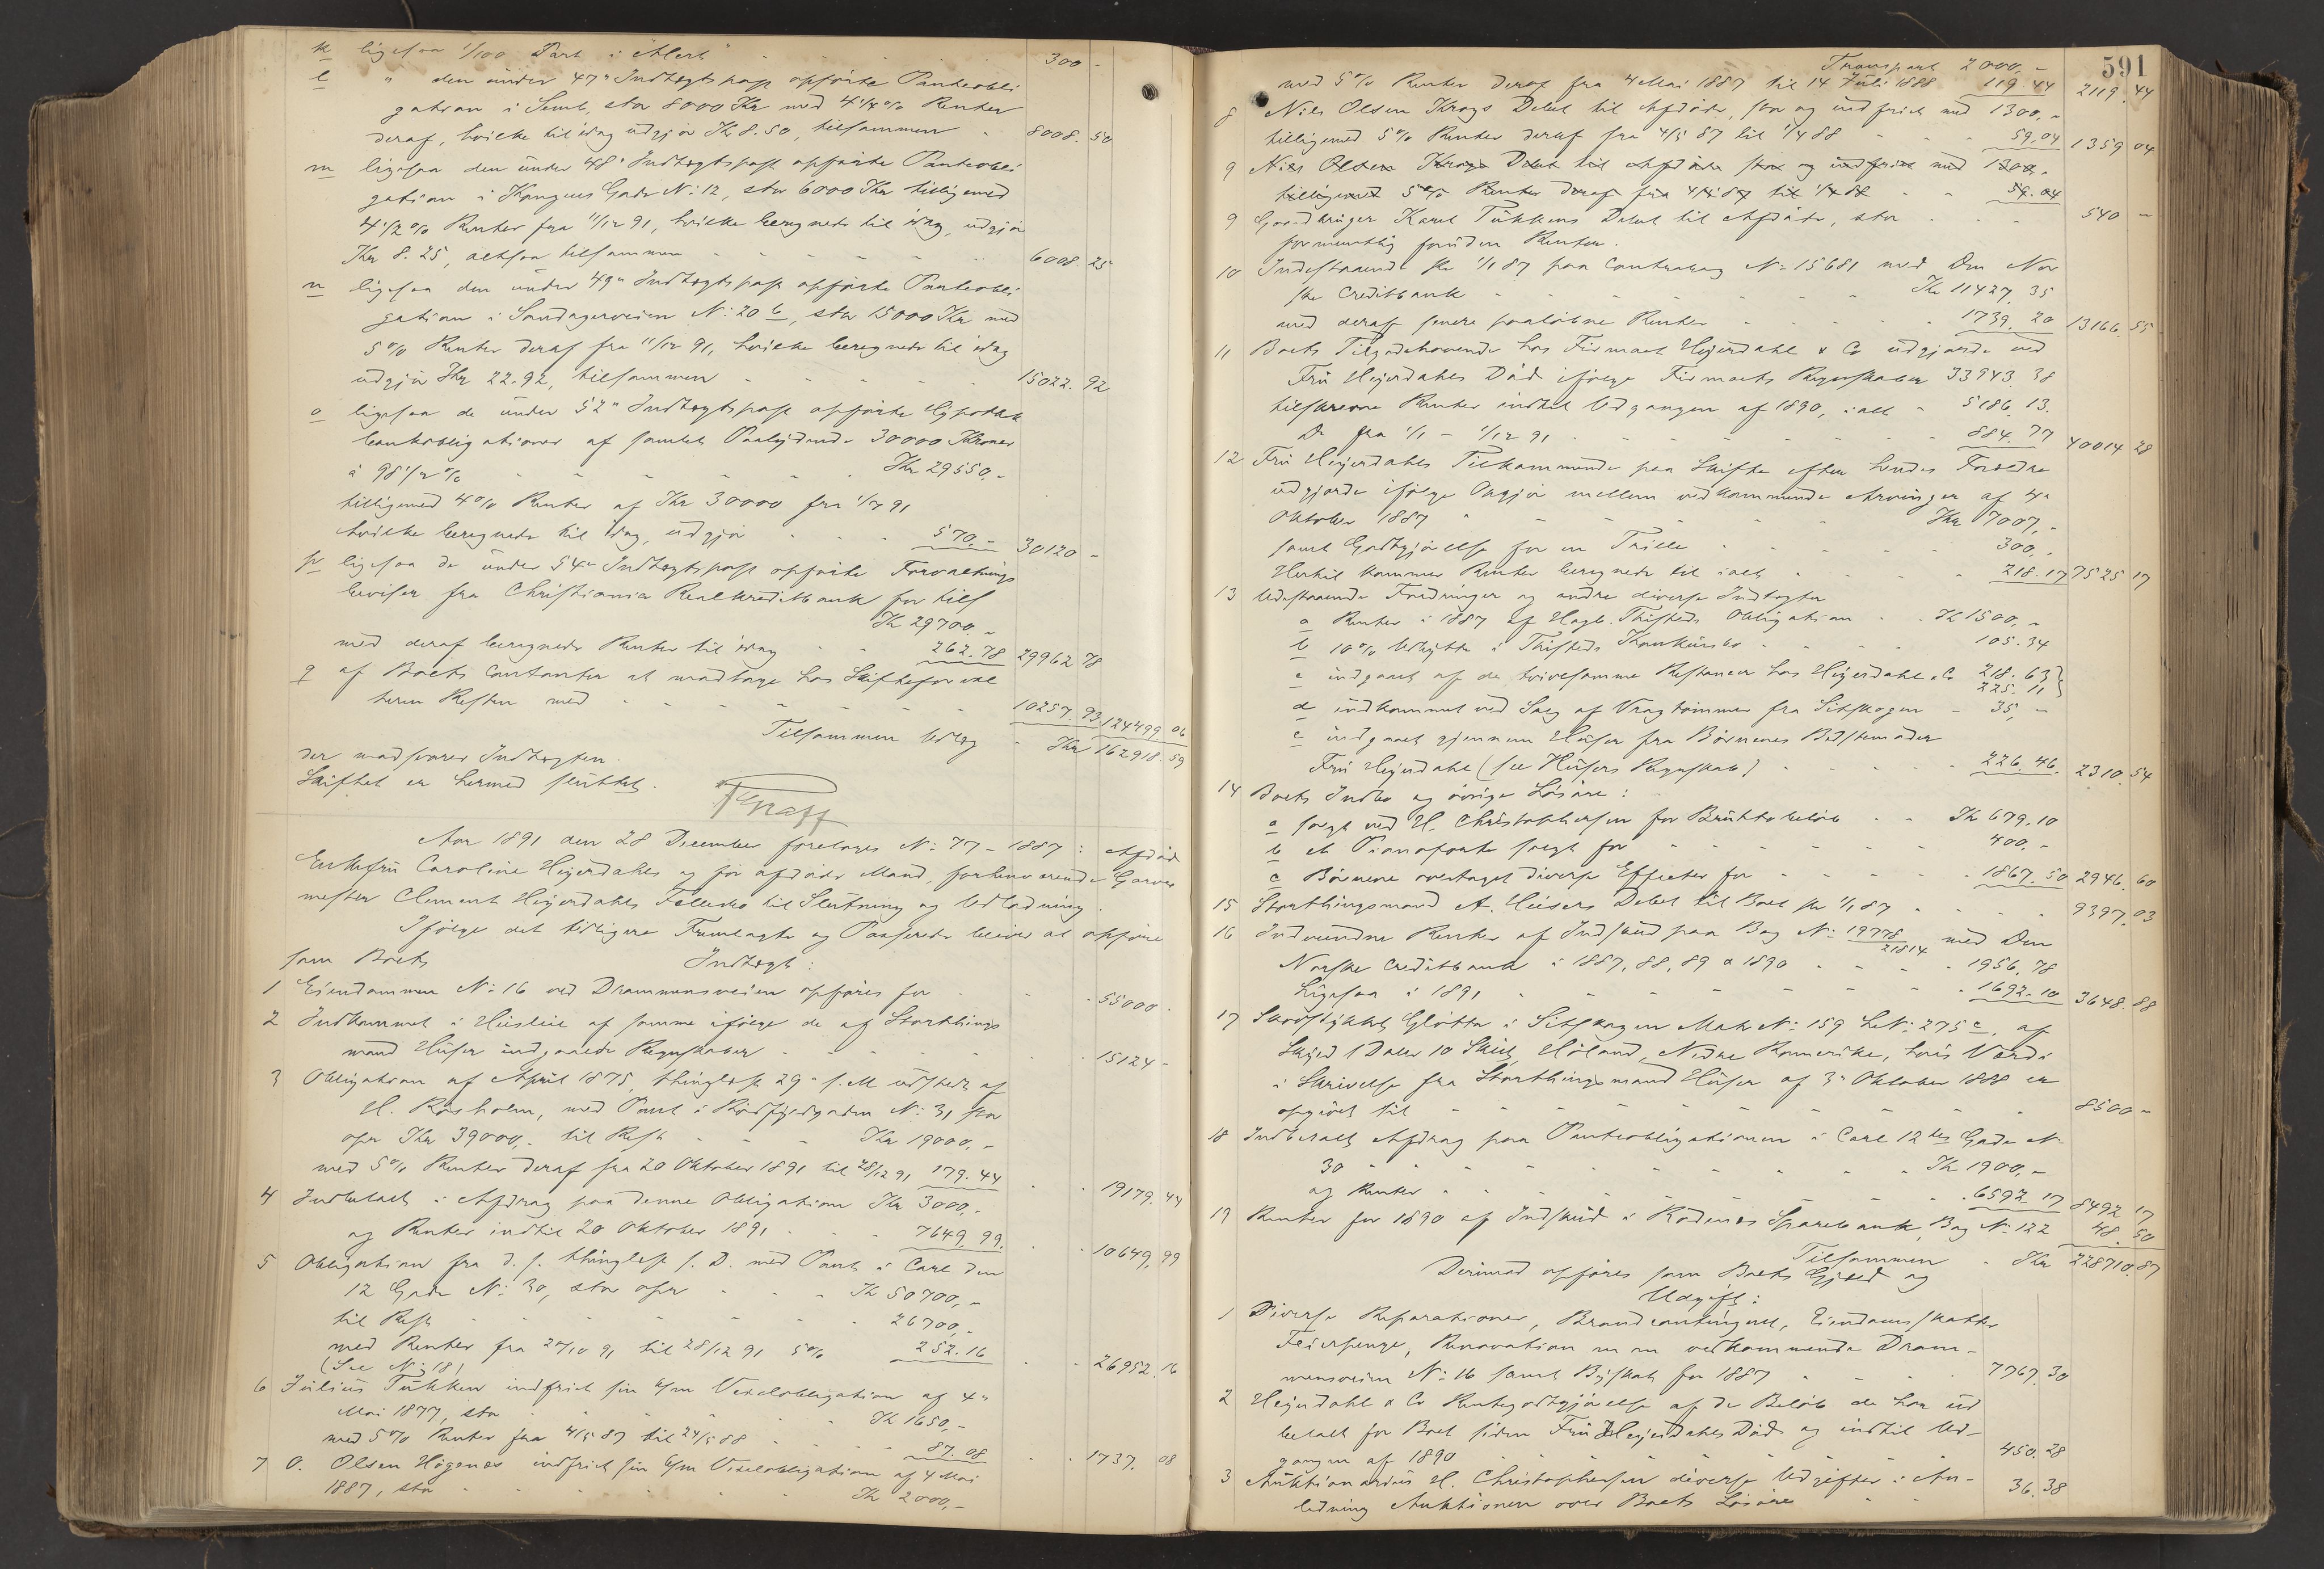 k ligesaa 1/100 Part i "Alert" 300 -
l " den under 47" Indtægtspost opførte Panteobli
gation i Semb, stor 8000 Kr med 4 1/4 % Renter
deraf, hvilke til idag udgjør Kr 8.50, tilsammen 8008.50
m ligesaa den under 48" Indtægtspost opførte Panteobli
gation i Kongens Gade No: 12, stor 6000 Kr tilligemed
4 1/2 % Renter fra 11/12 91, hvilke beregnede til idag, udgjør
Kr 8.25, altsaa tilsammen 6008.25
n ligesaa den under 49" Indtægtspost opførte Panteobli
gation i No: 20 b, stor 15000 Kr med
5 % Renter deraf fra 11/12 91, hvilke beregnede til idag
udgjør Kr 22.92, tilsammen 15022.92
o ligesaa de under 52" Indtægtspost opførte Hypothek
bankobligationer af samlet Paalydende 30000 Kroner
à 98 1/2 % Kr 29550,-
tilligemed 4 % Renter af Kr 30000 fra 1/7 91
hvilke beregnede til idag, udgjør 570.- 30120 -
p ligesaa de under 54" Indtægtspost opførte Forvaltnings
beviser fra Christiania Realkreditbank for tils
Kr 29700.-
med deraf beregnede Renter til idag 262.78 29962 78
q af Boets Contanter at modtage hos Skifteforval
teren Resten med 10257.93. 124499 06
Tilsammen Udlæg Kr 162918.59
der modsvarer Indtægten.
Skiftet er hermed sluttet.
Graff
Aar 1891 den 28 December foretoges No: 77 - 1887: Afdøde
Enkefru Caroline Heyerdahls og før afdøde Mand, forhenværende Garver
mester Clement Heyerdahls Fællesbo til Slutning og Udlodning.
Ifølge det tidligere Fremlagte og Passerede bliver at opføre
som Boets Indtægt:
1 Eiendommen No: 16 ved Drammensveien opføres for 55000.
2 Indkommet i Husleie af samme ifølge de af Storthings
mand Huser indgaaede Regnskaber 15124 -
3 Obligation af April 1875, thinglæst 29" s. M udstedt af
H. Rosholm, med Pant i Rødfyldgaden No: 31 stor
opr Kr 39000,- til Rest Kr 19000,-
med 5 % Renter deraf fra 20 Oktober 1891 til 28/12 91 179.44 19179.44
4 Indbetalt i Afdrag paa denne Obligation Kr 3000.-
og Renter indtil 20 Oktober 1891 7649.99. 10649,99
5 Obligation fra d. s. thinglæst s. D. med Pant i Carl den
12 Gade No: 30, stor opr Kr 50700,-
til Rest 26700,-
med Renter fra 20/10 91 til 28/12 91 5 % 252.16 26952.16
(See No: 18)
6 Julius Tukken indfriet sin 6/m Vexelobligation af 4"
Mai 1877, stor Kr 1650,-
med 5 % Renter fra 4/5 87 til 24/5 88 87.08 1737.08
7 O. Olsen Høgenæs indfriet sin 6/m Vexelobligation af 4 Mai
1887, stor Kr 2000,-
591
Transport 2000,-
med 5 % Renter deraf fra 4 Mai 1887 til 14 Juli 1888 119 44 2119.44
8 Nils Olsen Krogs Debet til Afdøde, stor og indfriet med 1300,-
tilligemed 5 % Renter deraf fra 4/5 87 til 1/4 88 59,04 1359 04
9 Nils Olsen Krogs Debet til Afdøde stor og indfriet med 1300,-
tilligemed 5 % Renter deraf fra 4/4 87 til 1/4 88 59.04
9 Gaardbruger Karel Tukkens Debet til Afdøde, stor 540 -
formentlig foruden Renter.
10 Indestaaende pr 1/1 87 paa Contrabog No: 15681 med Den Nor
ske Creditbank Kr 11427.35
med deraf senere paaløbne Renter 1739.20 13166.55
11 Boets Tilgodehavende hos Firmaet Heyerdahl & Co udgjorde ved
Fru Heyerdahls Død ifølge Firmaets Regnskaber 33943.38
tilskrevne Renter indtil Udgangen af 1890, ialt 5186.13.
Do fra 1/1 - 1/12 91 884.77 40014 28
12 Fru Heyerdahls Tilkommende paa Skifte efter hendes Forældre
udgjorde ifølge Opgjør mellem vedkommende Arvinger af 4"
Oktober 1887 Kr 7007,-
samt Godtgjørelse for en Trille 300,-
Hertil kommer Renter beregnede til ialt 218.17 7525 17
13 Udestaaende Fordringer og andre diverse Indtægter
a Renter i 1887 af Hagb. Thisteds Obligation Kr 1500,-
b 10 % Udbytte i Thisteds Konkursbo 105.34
c indgaaet af de tvivlsomme Restancer hos Heyerdahl & Co 218.63
225.11
d indkommet ved Salg af Vragtømmer fra Sitskogen 35,-
e indgaaet gjennem Huser fra Børnenes Bedstemoder
Fru Heyerdahl (see Husers Regnskab) 226.46. 2310.54
14 Boets Indbo og øvrige Løsøre:
a solgt ved H. Christophersen for Bruttobeløb Kr 679.10
b et Pianoforte solgt for 400,-
c Børnene overtaget diverse Effecter for 1867.50 2946.60
15 Storthingsmand A. Husers Debet til Boet pr 1/1 87 9397,03
16 Indvundne Renter af Indskud paa Bog No: 19778/21814 med Den
Norske Creditbank i 1887, 88, 89 & 1890 1956,78
Ligesaa i 1891 1692.10 3648.88
17 Skovstykket Gløtta i Sitskogen Matr No: 159 LNo: 275 c, af
Skyld 1 Daler 10 Skill, Høland, Nedre Romerike, hvis Værdi
i Skrivelse fra Storthingsmand Huser af 3" Oktober 1888 er
opgivet til 8500 -
18 Indbetalt Afdrag paa Panteobligationen i Carl 12tes Gade No
30 Kr 1900,-
og Renter 6592.17 8492 17
19 Renter for 1890 af Indskud i Rødenes Sparebank, Bog No: 122 48.50
Tilsammen Kr 228710.87
Derimod opføres som Boets Gjæld og
Udgift:
1 Diverse Reparationer, Brandcontingent, Eiendomsskatter
Feierpenge, Renovation m m vedkommende Dram-
mensveien No: 16 samt Byskat for 1887 7767.30
2 Heyerdahl & Co Rentegodtgjørelse af de Beløb de har ud
betalt for Boet siden Fru Heyerdahls Død og indtil Ud-
gangen af 1890 450.28
3 Auktionarius H. Christophersen diverse Udgifter i An-
ledning Auktionen over Boets Løsøre 36.38